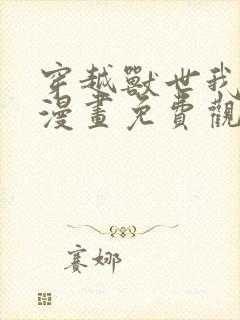 穿越獸世我
漫畫免費觀
賽娜